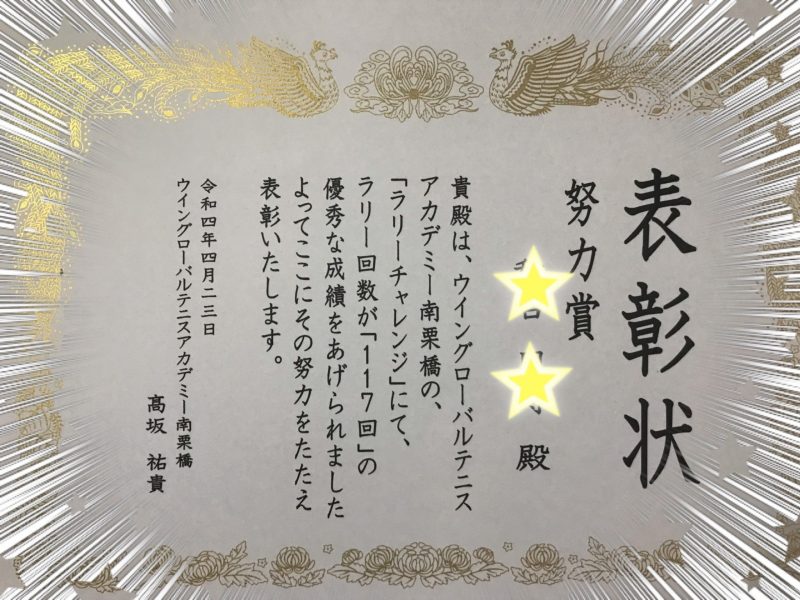 表彰状
努力賞
殿
貴殿は、ウイングローバルテニス
アカデミー南栗橋の、
「ラリーチャレンジ」にて、
ラリー回数が「117回」の
優秀な成績をあげられました
よってここにその努力をたたえ
表彰いたします。
令和四年四月二三日
ウイングローバルテニスアカデミー南栗橋
髙坂 祐貴